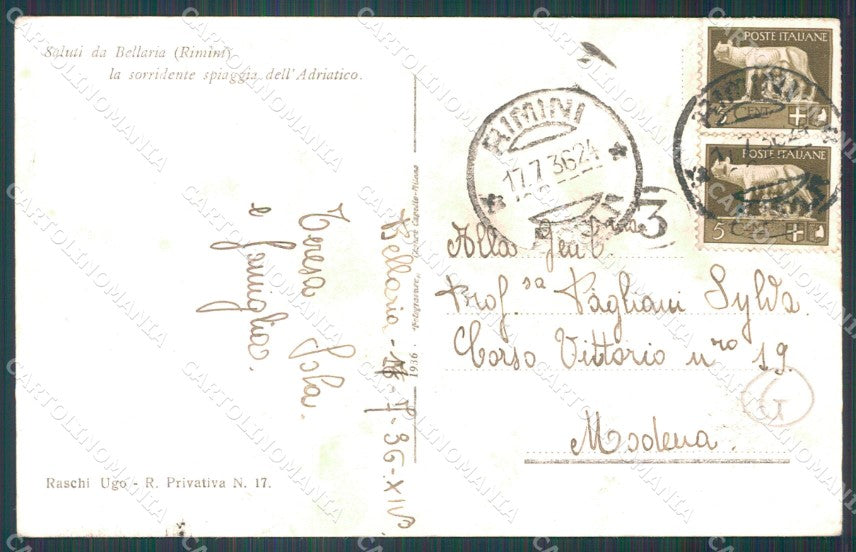 Saluti da Bellaria (Rimini)
la sorridente spiaggia dell'Adriatico.
Teresa
e famiglia.
Bellaria - 16-7-36-XIV
1936
Raschi Ugo - R. Privativa N. 17.
RIMINI
17.7.36 24
3
POSTE ITALIANE
CENT
POSTE ITALIANE
5 CENT
Alla Gent.
Prof.sa Pagliani Sylva
Corso Vittorio nro 19.
Modena.
G
CARTOLINOMANIA